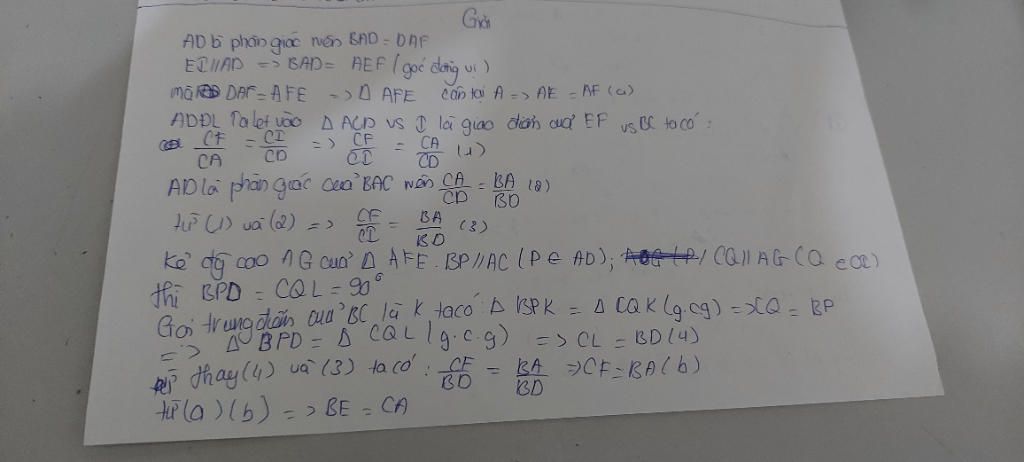 Giải
AD là phân giác nên BAD = DAF
EI//AD => BAD = AEF (góc đồng vị)
mà DAF = AFE => Δ AFE cân tại A => AE = AF (a)
ADĐL Ta let vào Δ ACD vs I là giao điểm của EF vs BC ta có:
CF/CA = CI/CD => CF/CI = CA/CD (1)
AD là phân giác của BAC nên CA/CD = BA/BD (2)
từ (1) và (2) => CF/CI = BA/BD (3)
Kẻ đg cao AG của Δ AFE. BP//AC (P ∈ AD); CQ//AG (Q ∈ OI)
thì BPD = CQI = 90°
Gọi trung điểm của BC là K ta có: Δ BPK = Δ CQK (g.cg) => CQ = BP
=> Δ BPD = Δ CQL (g.c.g) => CL = BD (4)
thay (4) và (3) ta có: CF/BD = BA/BD => CF = BA (b)
từ (a) (b) => BE = CA